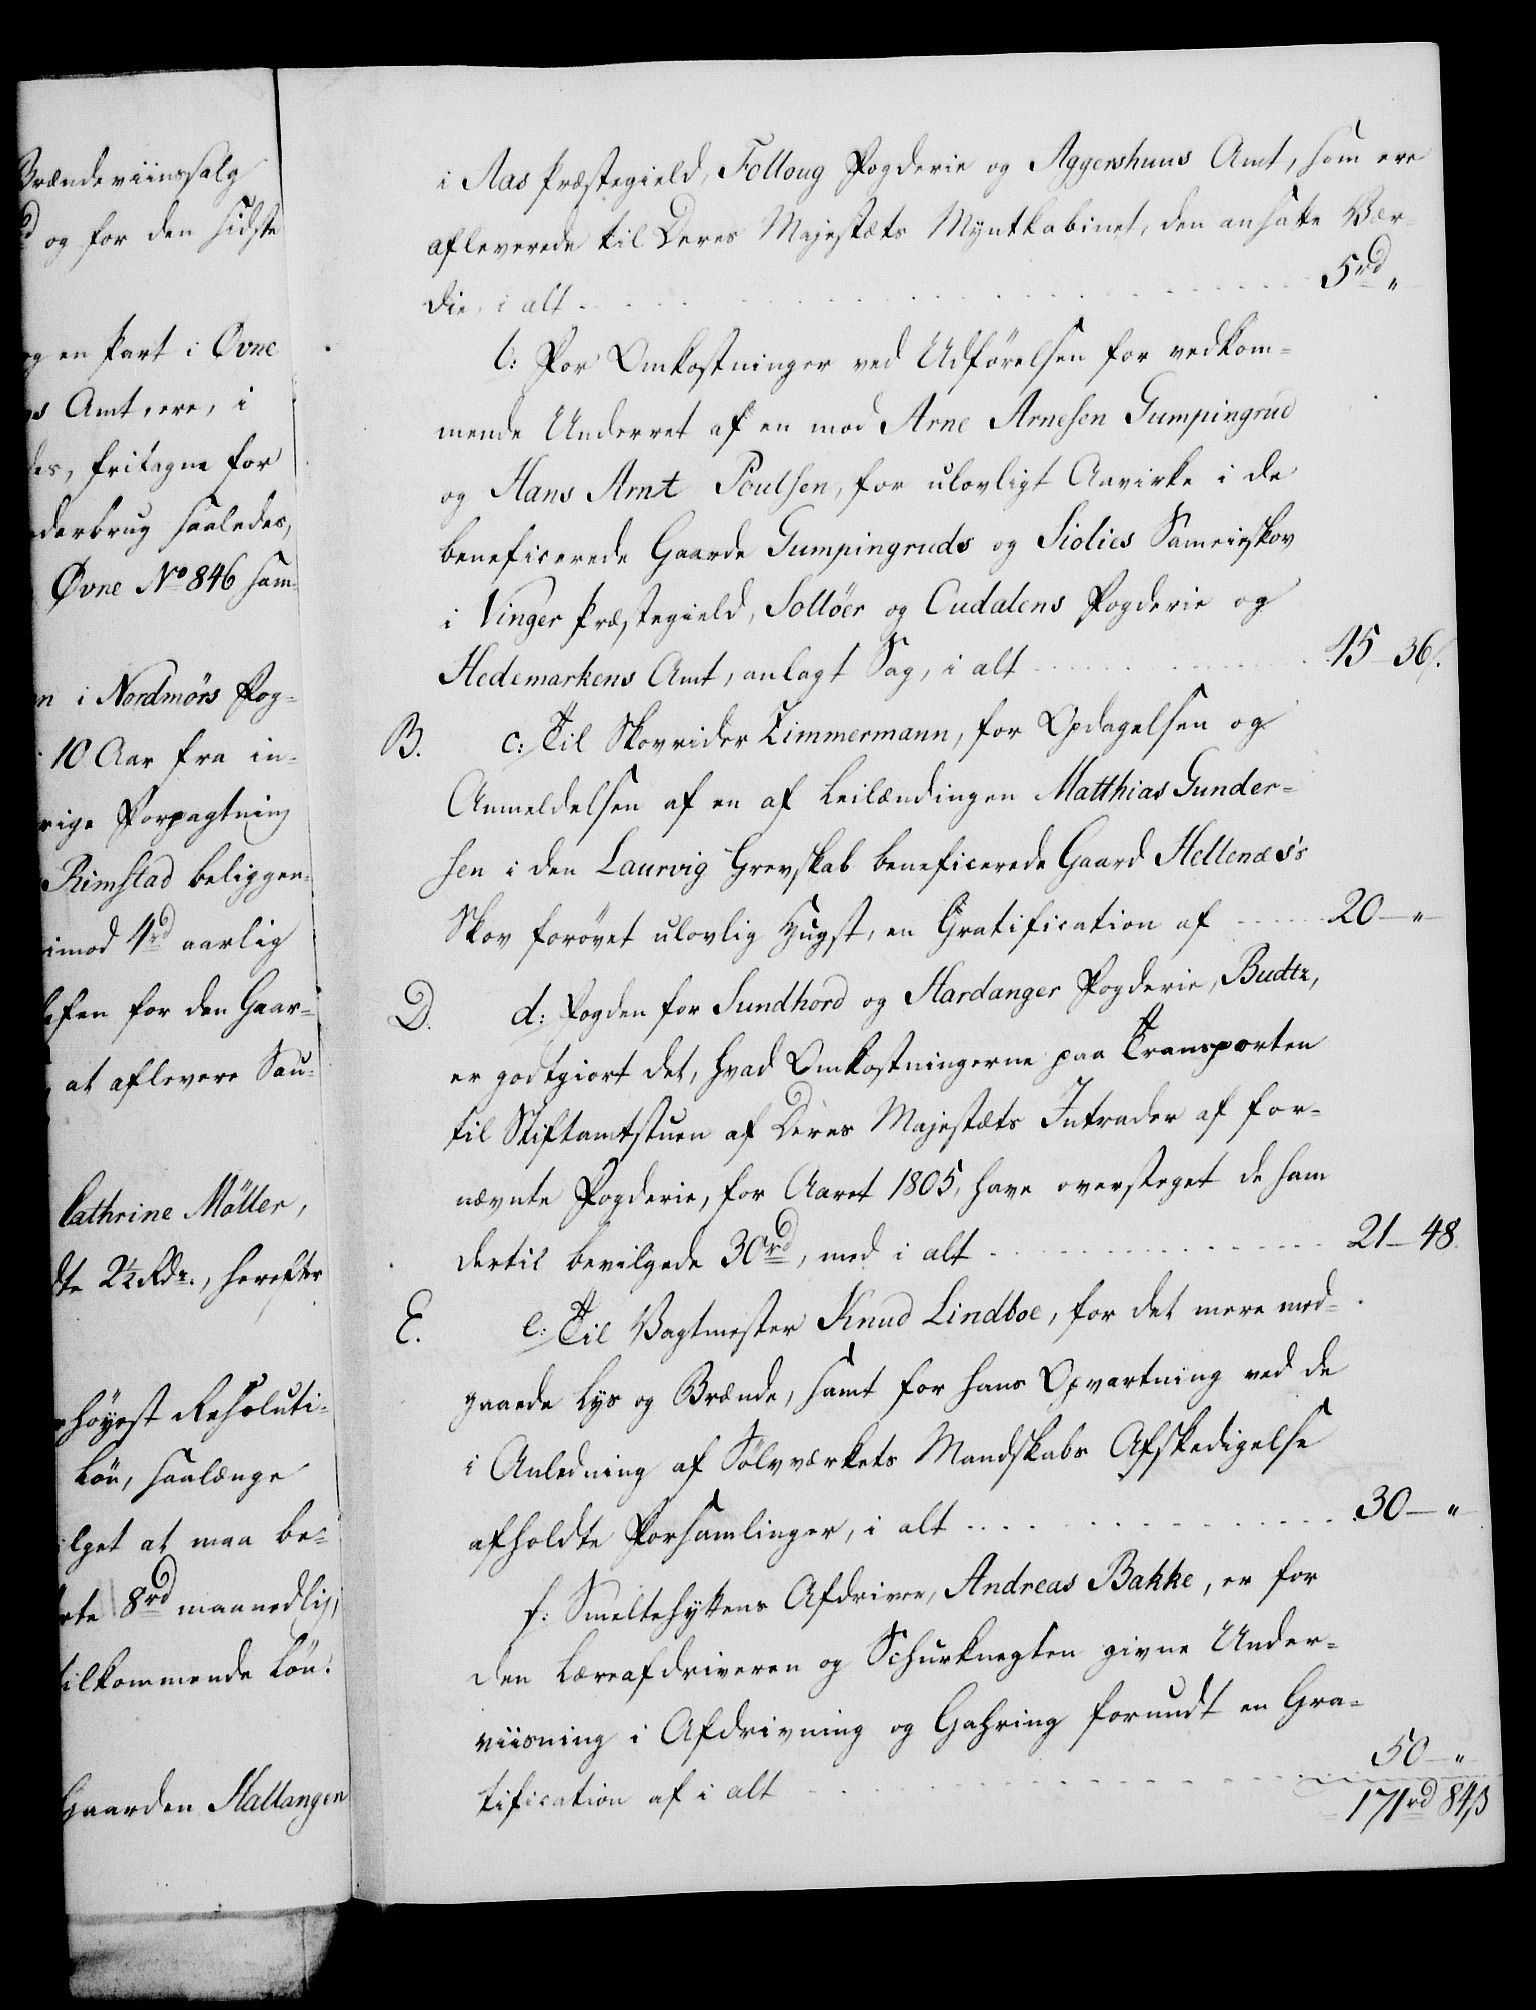 Brændeviinssalg
og for den sidste
og en Part i Øvne
Amt, ere, i
des, fritagne for
derbrug saaledes,
Øvne No 846 sam-
i Nordmörs Fog-
10 Aar fra in-
rige Forpagtning
Rimstad beliggen-
imod 4rd aarlig
for den Gaar-
at aflevere Sau-
Cathrine Möller,
2½ Rdr., herefter
höyest Resoluti-
Lön, saalænge
lget at maa be-
8rd maanedlig,
tilkommende Lön.
Gaarden Hallangen
i Aas Præstegield, Folloug Fogderie og Aggershuus Amt, som ere
afleverede til Deres Majestæts Myntkabinet, den ansatte Vær-
die, i alt 5rd "
b: For Omkostninger ved Udförelsen for vedkom-
mende Underret af en mod Arne Arnesen Gumpingrud
og Hans Arnt Poulsen, for ulovligt Anvirke i de
beneficerede Gaarde Gumpingruds og Siolies Sameieskov
i Vinger Præstegield, Solløer og Oudalens Fogderie og
Hedemarkens Amt, anlagt Sag, i alt 45 – 36.
B. c: Til Skovrider Zimmermann, for Opdagelsen og
Anmeldelsen af en af Leilændingen Matthias Gunder-
sen i den Laurvig Grevskab beneficerede Gaard Hellenæs's
Skov forövet ulovlig Hugst, en Gratification af 20 – "
D. d: Fogden for Sundhord og Hardanger Fogderie, Budtz,
er godtgiort det, hvad Omkostningerne paa Transporten
til Stiftamtstuen af Deres Majestæts Intrader af for-
nævnte Fogderie, for Aaret 1805, have oversteget de ham
dertil bevilgede 30rd, med i alt 21 – 48.
E. e: Til Vagtmester Knud Lindboe, for det mere med-
gaaede Lys og Brænde, samt for hans Opvartning ved de
i Anledning af Sölvværkets Mandskabs Afskedigelse
afholdte Forsamlinger, i alt 30 – "
f: Smeltehyttens Afdriver, Andreas Bakke, er for
den Læreafdriveren og Schurknegten givne Under-
viisning i Afdrivning og Gahring forundt en Gra-
tification af i alt 50 – "
171rd 84ß